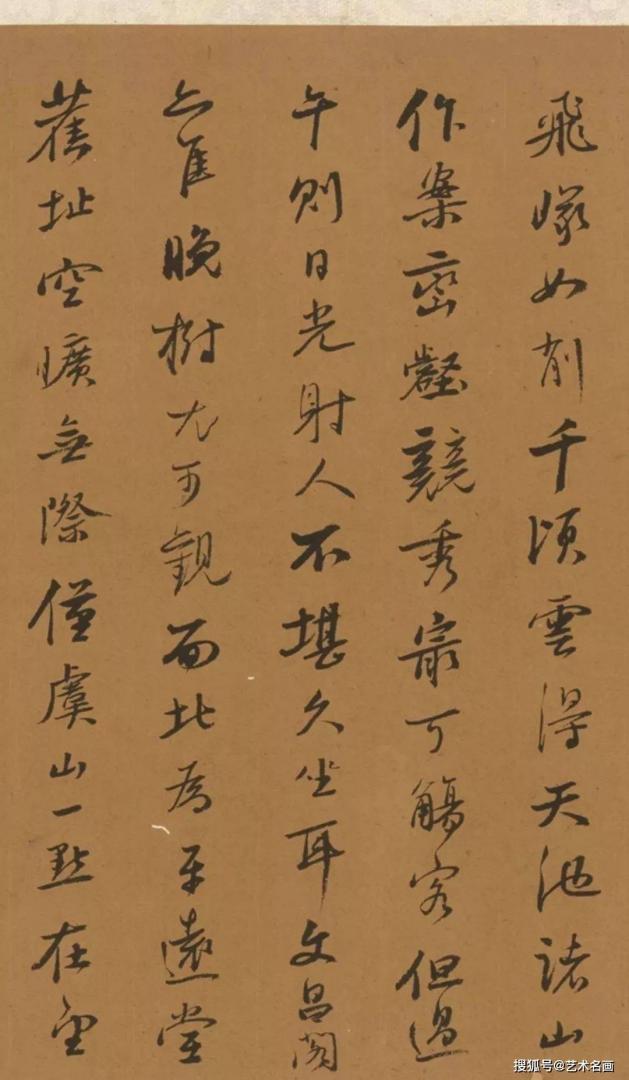 飛巖如削千頃雲得天池諸山
作案峦壑競秀最可觴客但過
午則日光射人不堪久坐耳文昌閣
亦佳晚樹尤可觀面北為平遠堂
舊址空曠無際僅虞山一點在望
搜狐号@艺术名画